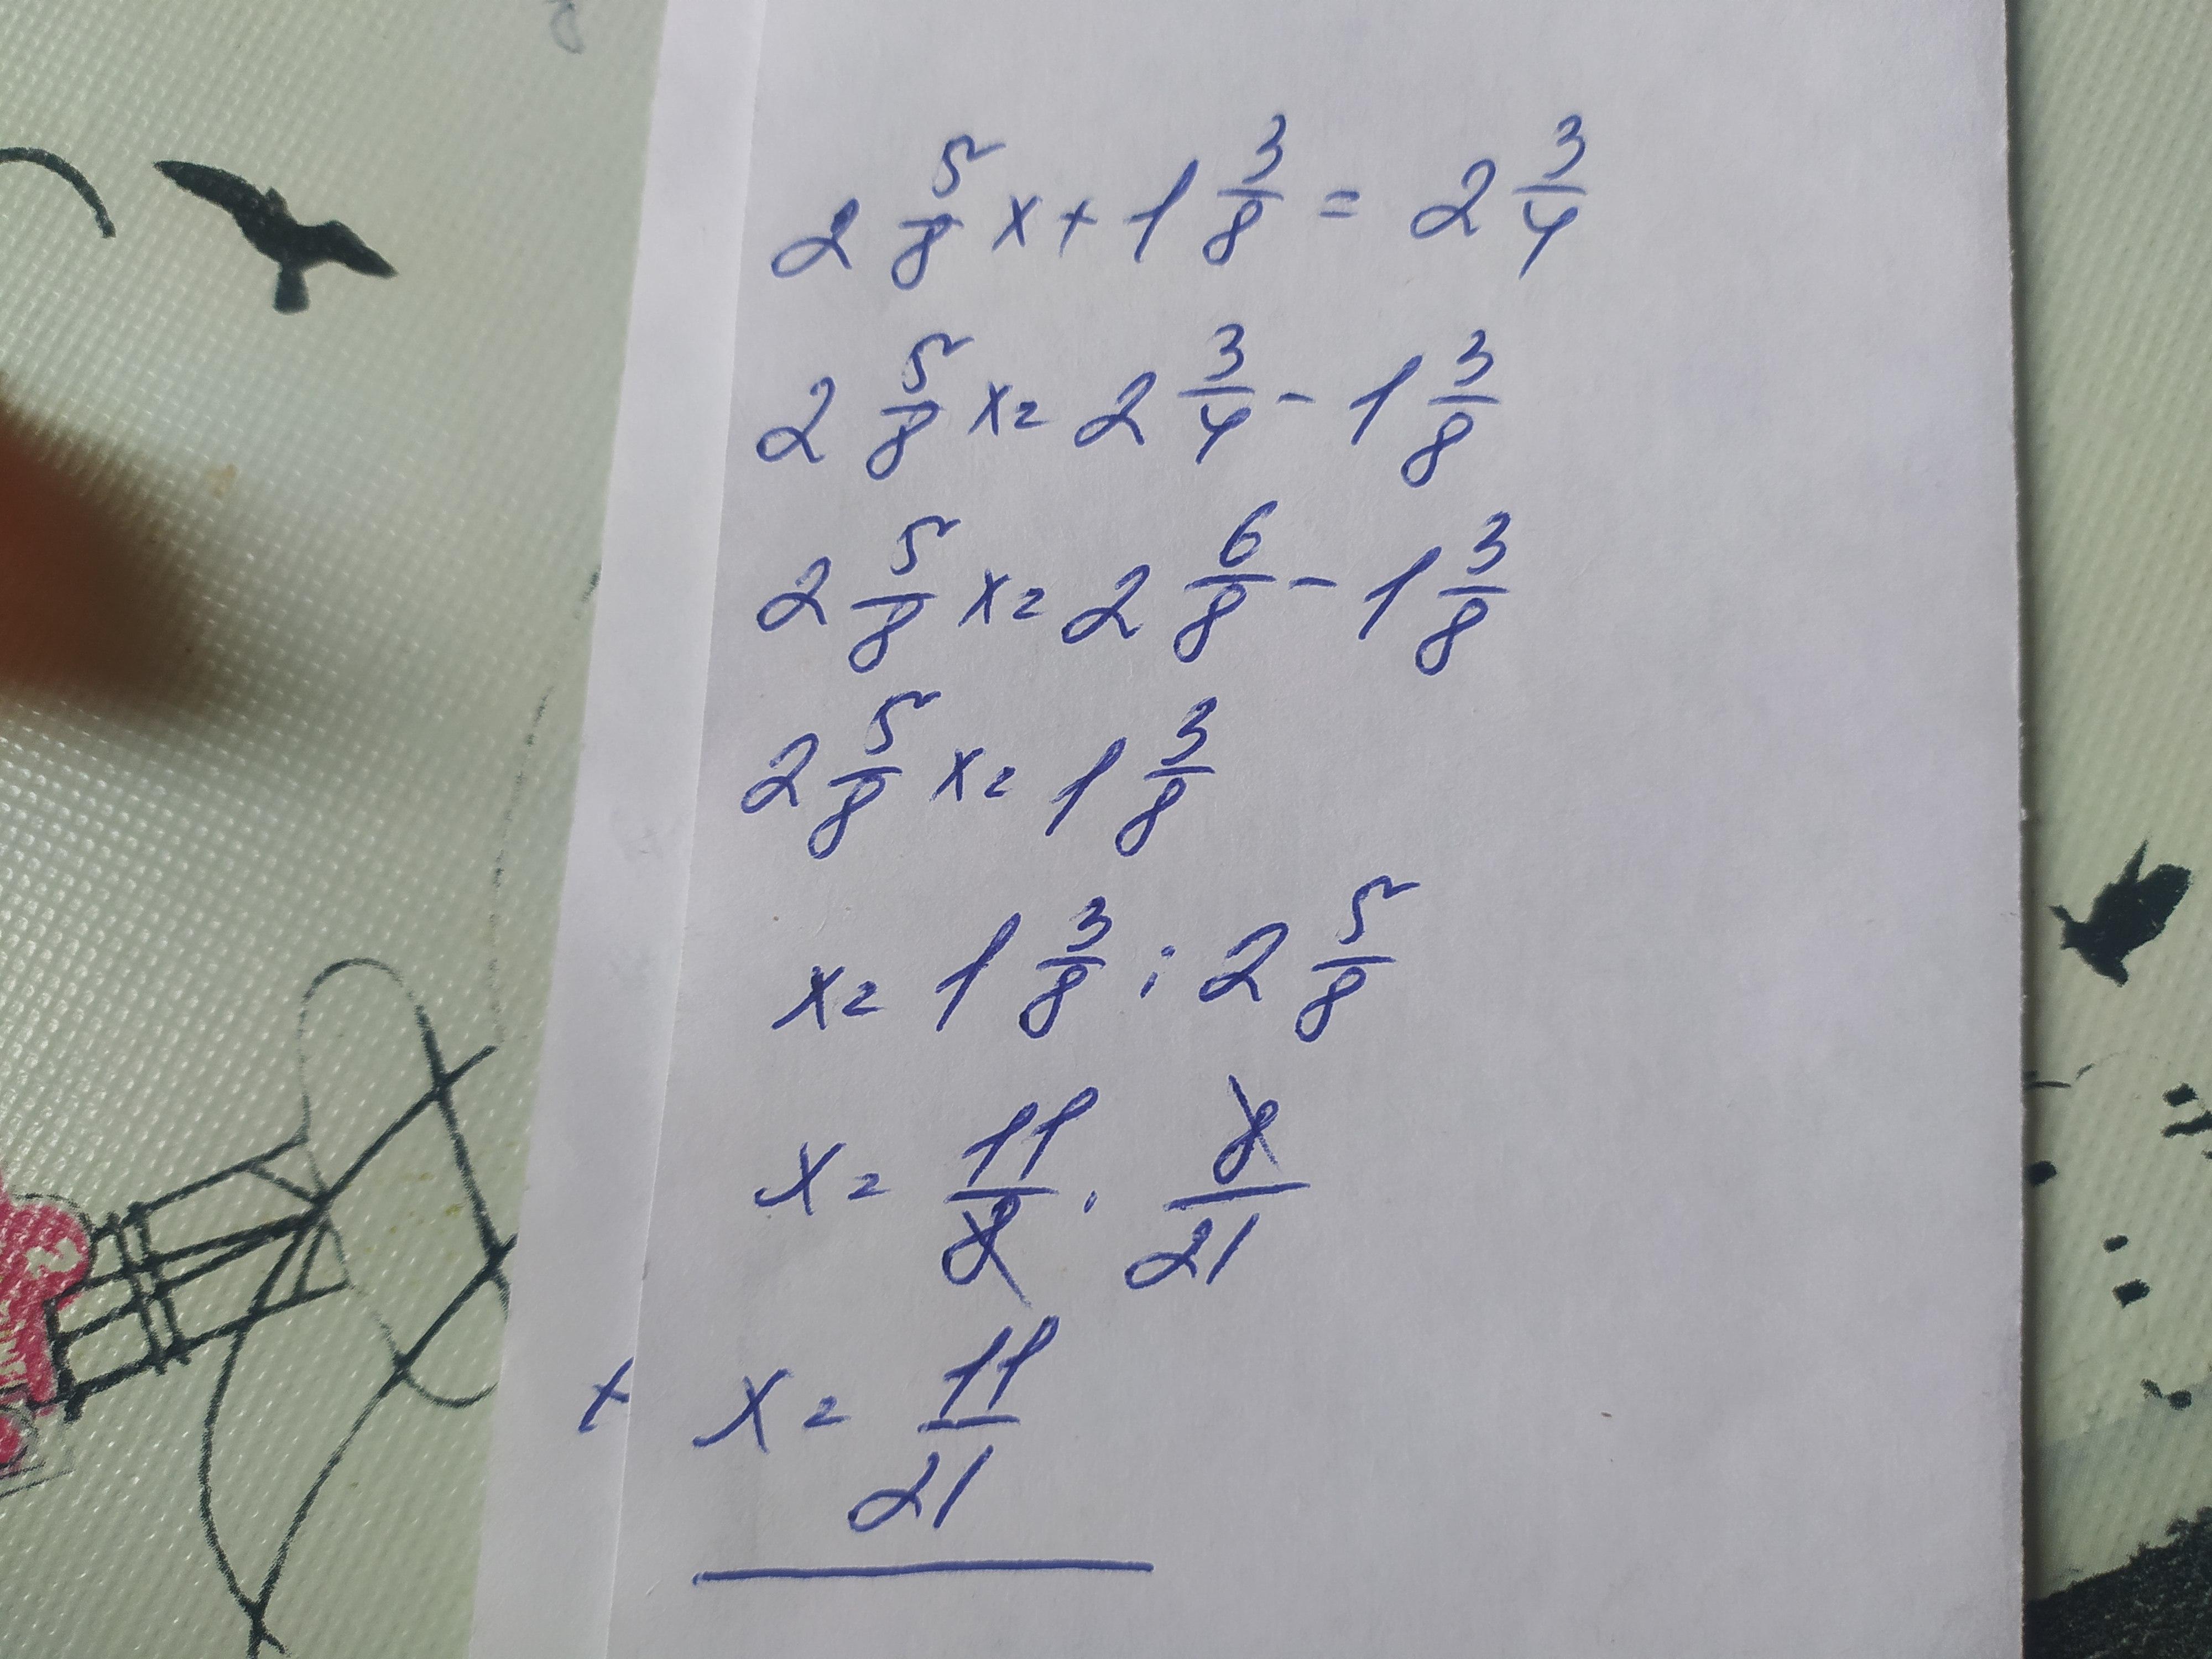 2 5/8 x + 1 3/8 = 2 3/4
2 5/8 x = 2 3/4 - 1 3/8
2 5/8 x = 2 6/8 - 1 3/8
2 5/8 x = 1 3/8
x = 1 3/8 : 2 5/8
x = 11/8 · 8/21
x = 11/21